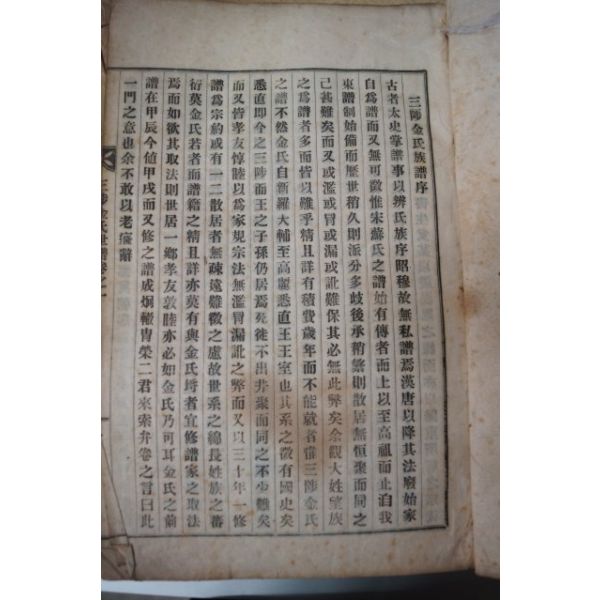 三陟金氏族譜序
古者太史掌譜事以辨氏族序昭穆故無私譜焉漢唐以降其法廢始家
自爲譜而又無可徵惟宋蘇氏之譜始有傳者而上以至高祖而止洎我
東譜制始備而歷世稍久則派分多歧後承稍繁則散居無恒聚而同之
已甚難矣而又或濫或冒或漏或訛難保其必無此弊矣余觀大姓望族
之爲譜者多而皆以難乎精且詳有積費歲年而不能就者惟三陟金氏
之譜不然金氏自新羅大輔至高麗悉直王王室也其系之徵有國史矣
悉直卽今之三陟而王之子孫仍居焉矣徙不出井聚而同之不少難矣
而又皆孝友惇睦以爲家規宗法無濫冒漏訛之弊而又以三十年一修
譜爲宗約或有一二散居者無疎遠難徵之慮故世系之綿長姓族之蕃
衍莫金氏若者而譜籍之精且詳亦莫有與金氏埒者宜修譜家之取法
焉而如欲其取法則世居一鄕孝友敦睦亦必如金氏乃可耳金氏之前
譜在甲辰今値甲戌而又修之譜成炯轍胄榮二君來索弁卷之言曰此
一門之意也余不敢以老癃辭
三陟金氏世譜卷之一